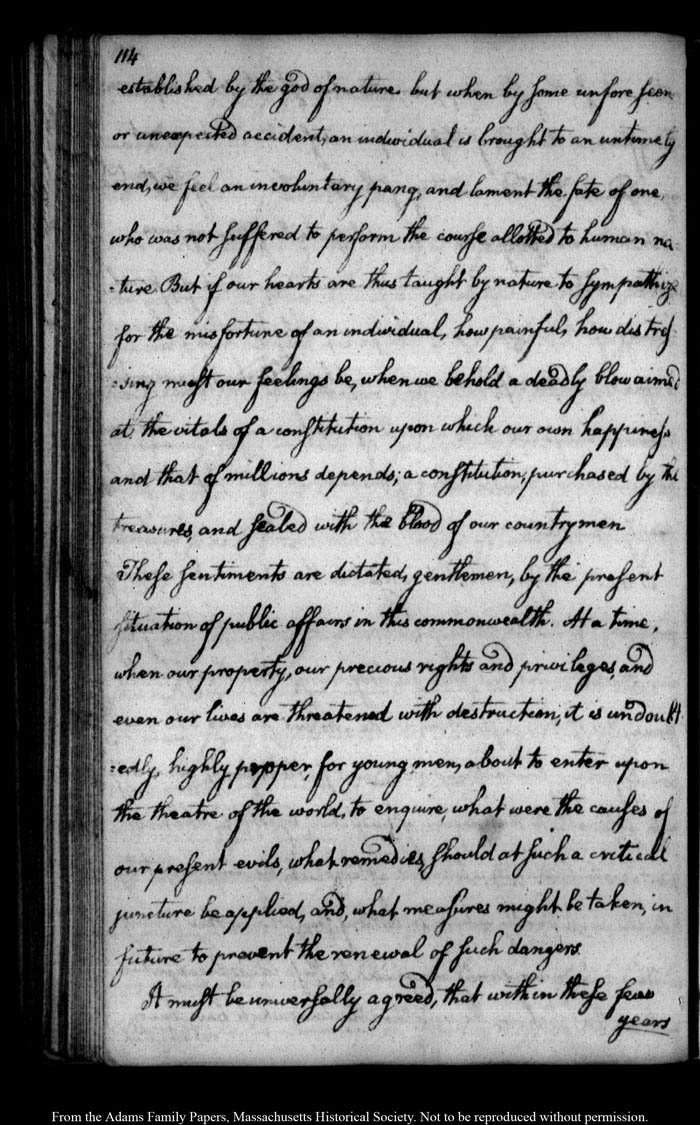 114
established by the god of nature. but when by some unforeseen
or unexpected accident, an individual is brought to an untimely
end, we feel an involuntary pang, and lament the fate of one,
who was not suffered to perform the course allotted to human na
-ture. But if our hearts are thus taught by nature to sympathize
for the misfortune of an individual, how painful, how distres
=sing must our feelings be, when we behold a deadly blow aimed
at the vitals of a constitution upon which our own happiness
and that of millions depends; a constitution, purchased by the
treasures, and sealed with the blood of our countrymen
These sentiments are dictated, gentlemen, by the present
situation of public affairs in this commonwealth. At a time,
when our property, our precious rights and privileges, and
even our lives are threatened with destruction, it is undoubt
=edly, highly proper, for young men, about to enter upon
the theatre of the world, to enquire, what were the causes of
our present evils, what remedies, should at such a critical
juncture be applied, and, what measures might be taken, in
future to prevent the renewal of such dangers.
It must be universally agreed, that within these few
years
From the Adams Family Papers, Massachusetts Historical Society. Not to be reproduced without permission.